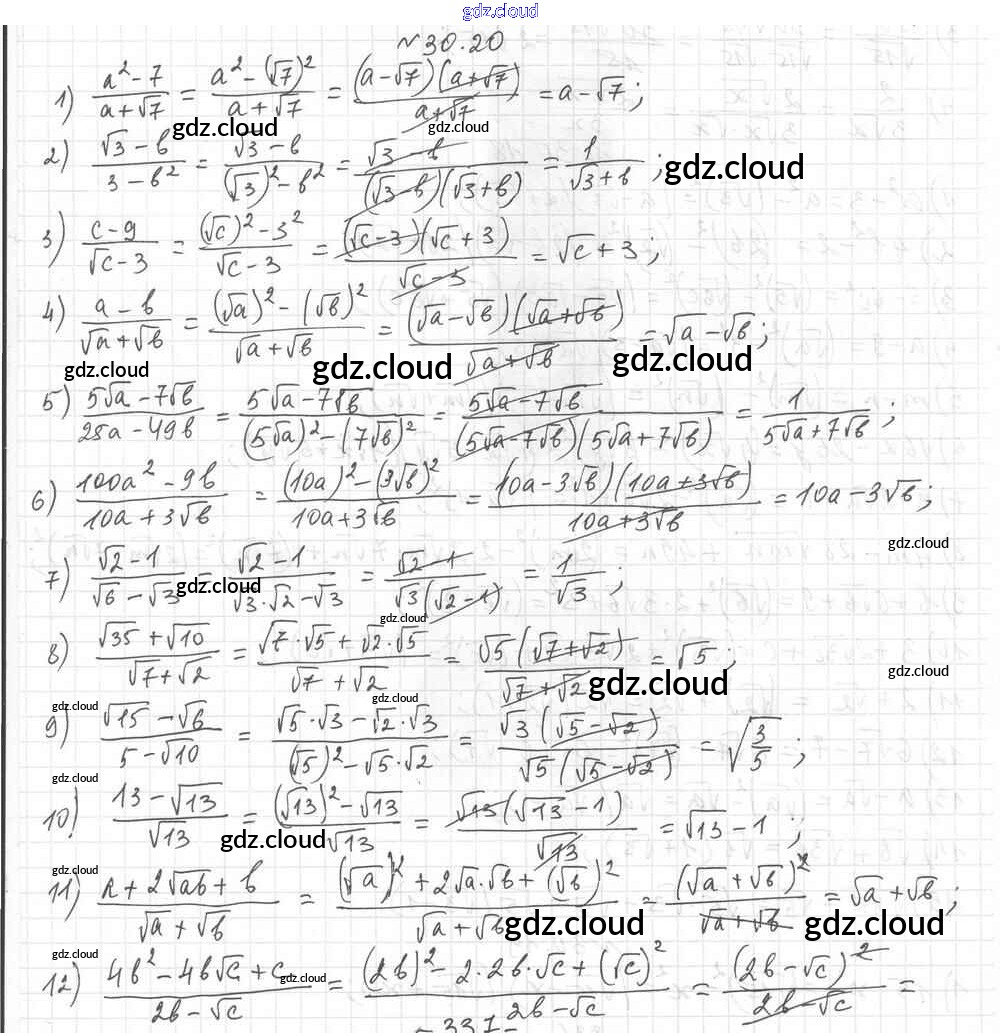 gdz.cloud
№30.20
1) (a²-7)/(a+√7) = (a²-(√7)²)/(a+√7) = ((a-√7)(a+√7))/(a+√7) = a-√7;
gdz.cloud gdz.cloud
2) (√3-b)/(3-b²) = (√3-b)/((√3)²-b²) = (√3-b)/((√3-b)(√3+b)) = 1/(√3+b);
gdz.cloud
3) (c-9)/(√c-3) = ((√c)²-3²)/(√c-3) = ((√c-3)(√c+3))/(√c-3) = √c+3;
4) (a-b)/(√a+√b) = ((√a)²-(√b)²)/(√a+√b) = ((√a-√b)(√a+√b))/(√a+√b) = √a-√b;
gdz.cloud gdz.cloud gdz.cloud
5) (5√a-7√b)/(25a-49b) = (5√a-7√b)/((5√a)²-(7√b)²) = (5√a-7√b)/((5√a-7√b)(5√a+7√b)) = 1/(5√a+7√b);
6) (100a²-9b)/(10a+3√b) = ((10a)²-(3√b)²)/(10a+3√b) = ((10a-3√b)(10a+3√b))/(10a+3√b) = 10a-3√b;
gdz.cloud
7) (√2-1)/(√6-√3) = (√2-1)/(√3·√2-√3) = (√2-1)/(√3(√2-1)) = 1/√3;
gdz.cloud
gdz.cloud
8) (√35+√10)/(√7+√2) = (√7·√5+√2·√5)/(√7+√2) = (√5(√7+√2))/(√7+√2) = √5;
gdz.cloud gdz.cloud
gdz.cloud gdz.cloud
9) (√15-√6)/(5-√10) = (√5·√3-√2·√3)/((√5)²-√5·√2) = (√3(√5-√2))/(√5(√5-√2)) = √(3/5);
gdz.cloud
10) (13-√13)/√13 = ((√13)²-√13)/√13 = (√13(√13-1))/√13 = √13-1;
gdz.cloud
gdz.cloud
11) (a+2√ab+b)/(√a+√b) = ((√a)²+2√a·√b+(√b)²)/(√a+√b) = (√a+√b)²/(√a+√b) = √a+√b;
gdz.cloud gdz.cloud
gdz.cloud
12) (4b²-4b√c+c)/(2b-√c) = ((2b)²-2·2b·√c+(√c)²)/(2b-√c) = (2b-√c)²/(2b-√c) =
gdz.cloud
-331-